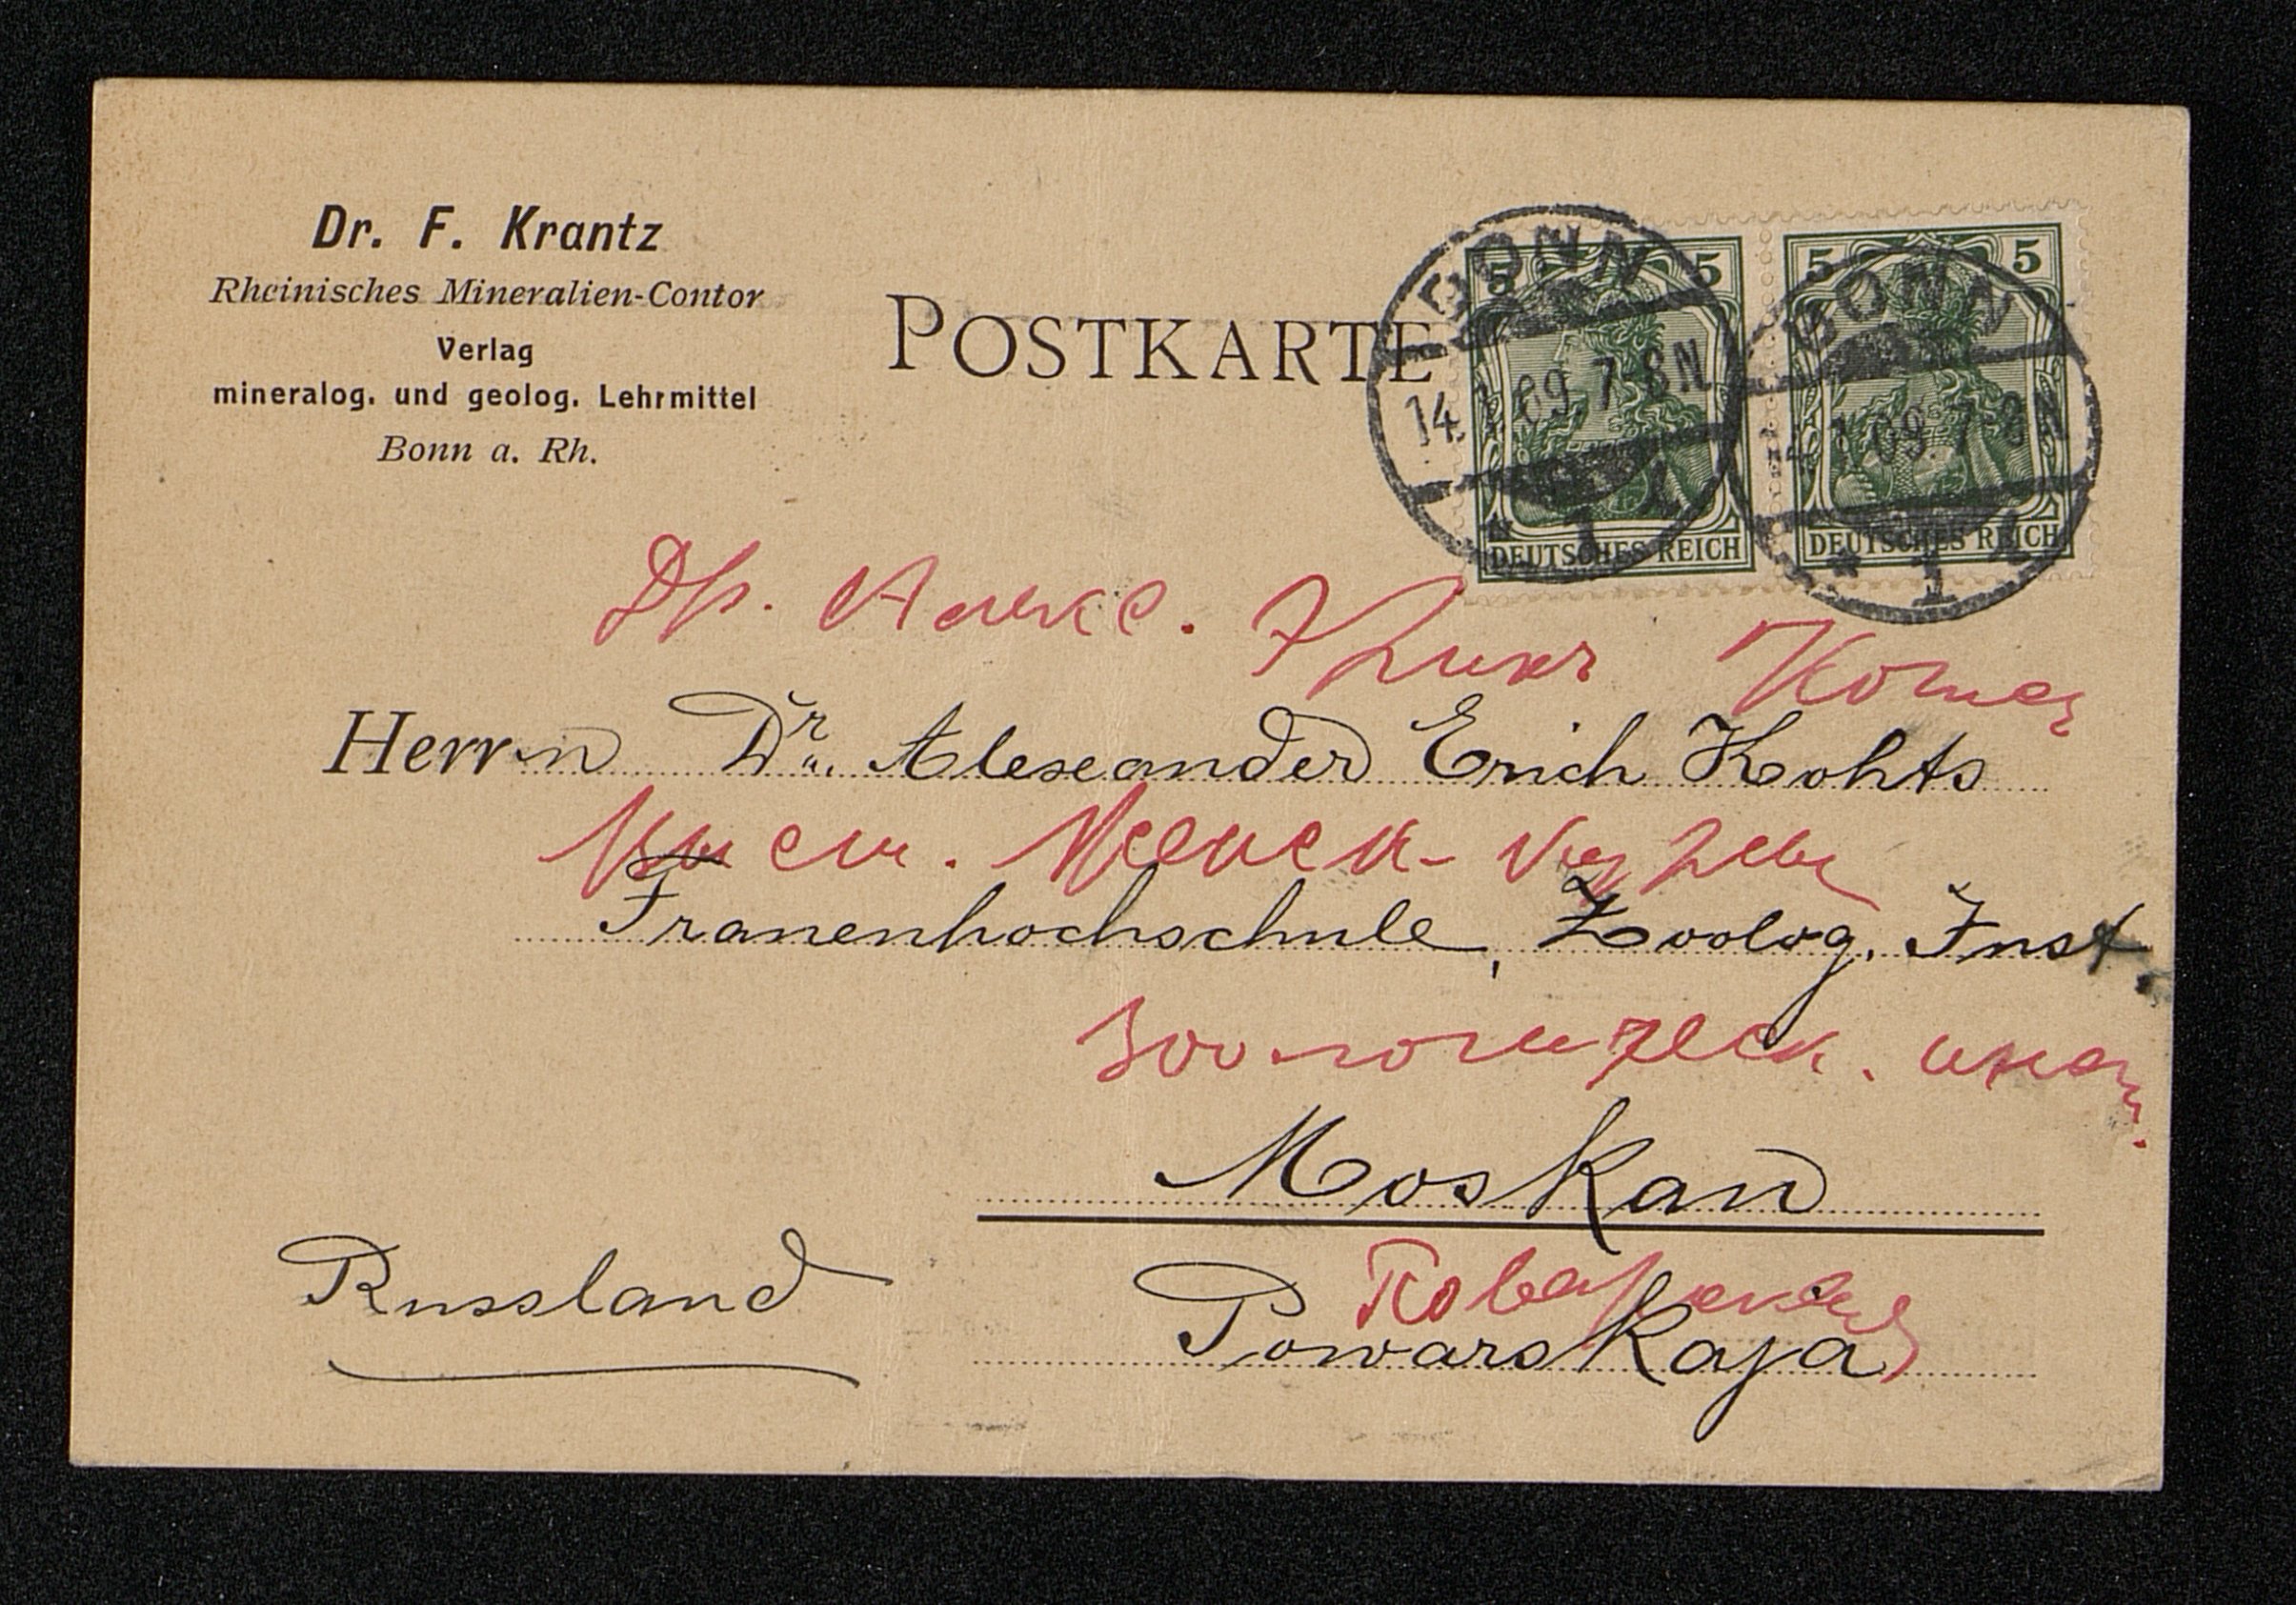 Dr. F. Krantz
Rheinisches Mineralien-Contor
Verlag
mineralog. und geolog. Lehrmittel
Bonn a. Rh.
POSTKARTE
5 5 5 5
BONN
14. 1. 09. 7-8N
* 1
DEUTSCHES REICH
BONN
14. 1. 09. 7-8N
* 1
DEUTSCHES REICH
Др. Алекс. Эрих Котс
Herrn Dr. Alexander Erich Kohts
Женск.
Frauenhochschule, Zoolog. Inst.
Зоологическ.
Moskau
Russland
Поварская
Powarskaja